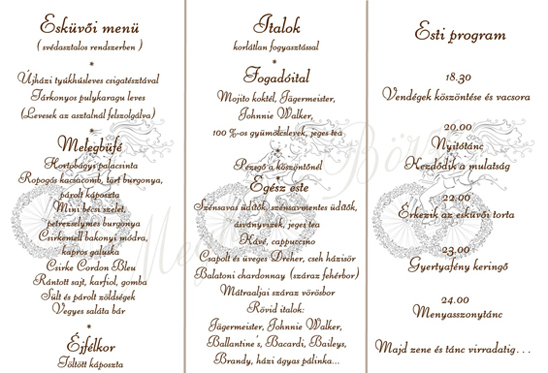 Esküvői menü
( svédasztalos rendszerben )
*
Újházi tyúkhúsleves csigatésztával
Tárkonyos pulykaragu leves
(Levesek az asztalnál felszolgálva)
*
Melegbüfé
Hortobágyi palacsinta
Ropogós kacsacomb, tört burgonya,
párolt káposzta
Mini bécsi szelet,
petrezselymes burgonya
Csirkemell bakonyi módra,
kapros galuska
Csirke Cordon Bleu
Rántott sajt, karfiol, gomba
Sült és párolt zöldségek
Vegyes saláta bár
*
Éjfélkor
Töltött káposzta
Italok
korlátlan fogyasztással
*
Fogadóital
Mojito koktél, Jägermeister,
Johnnie Walker,
100 %-os gyümölcslevek, jeges tea
*
Pezsgő a köszöntőnél
*
Egész este
Szénsavas üdítők, szénsavmentes üdítők,
ásványvizek, jeges tea
Kávé, cappuccino
Csapolt és üveges Dreher, cseh házisör
Balatoni chardonnay (száraz fehérbor)
Mátraaljai száraz vörösbor
Rövid italok:
Jägermeister, Johnnie Walker,
Ballantine's, Bacardi, Baileys,
Brandy, házi ágyas pálinka...
Esti program
18.30
Vendégek köszöntése és vacsora
20.00
Nyitótánc
Kezdődik a mulatság
22.00
Érkezik az esküvői torta
23.00
Gyertyafény keringő
24.00
Menyasszonytánc
Majd zene és tánc virradatig...